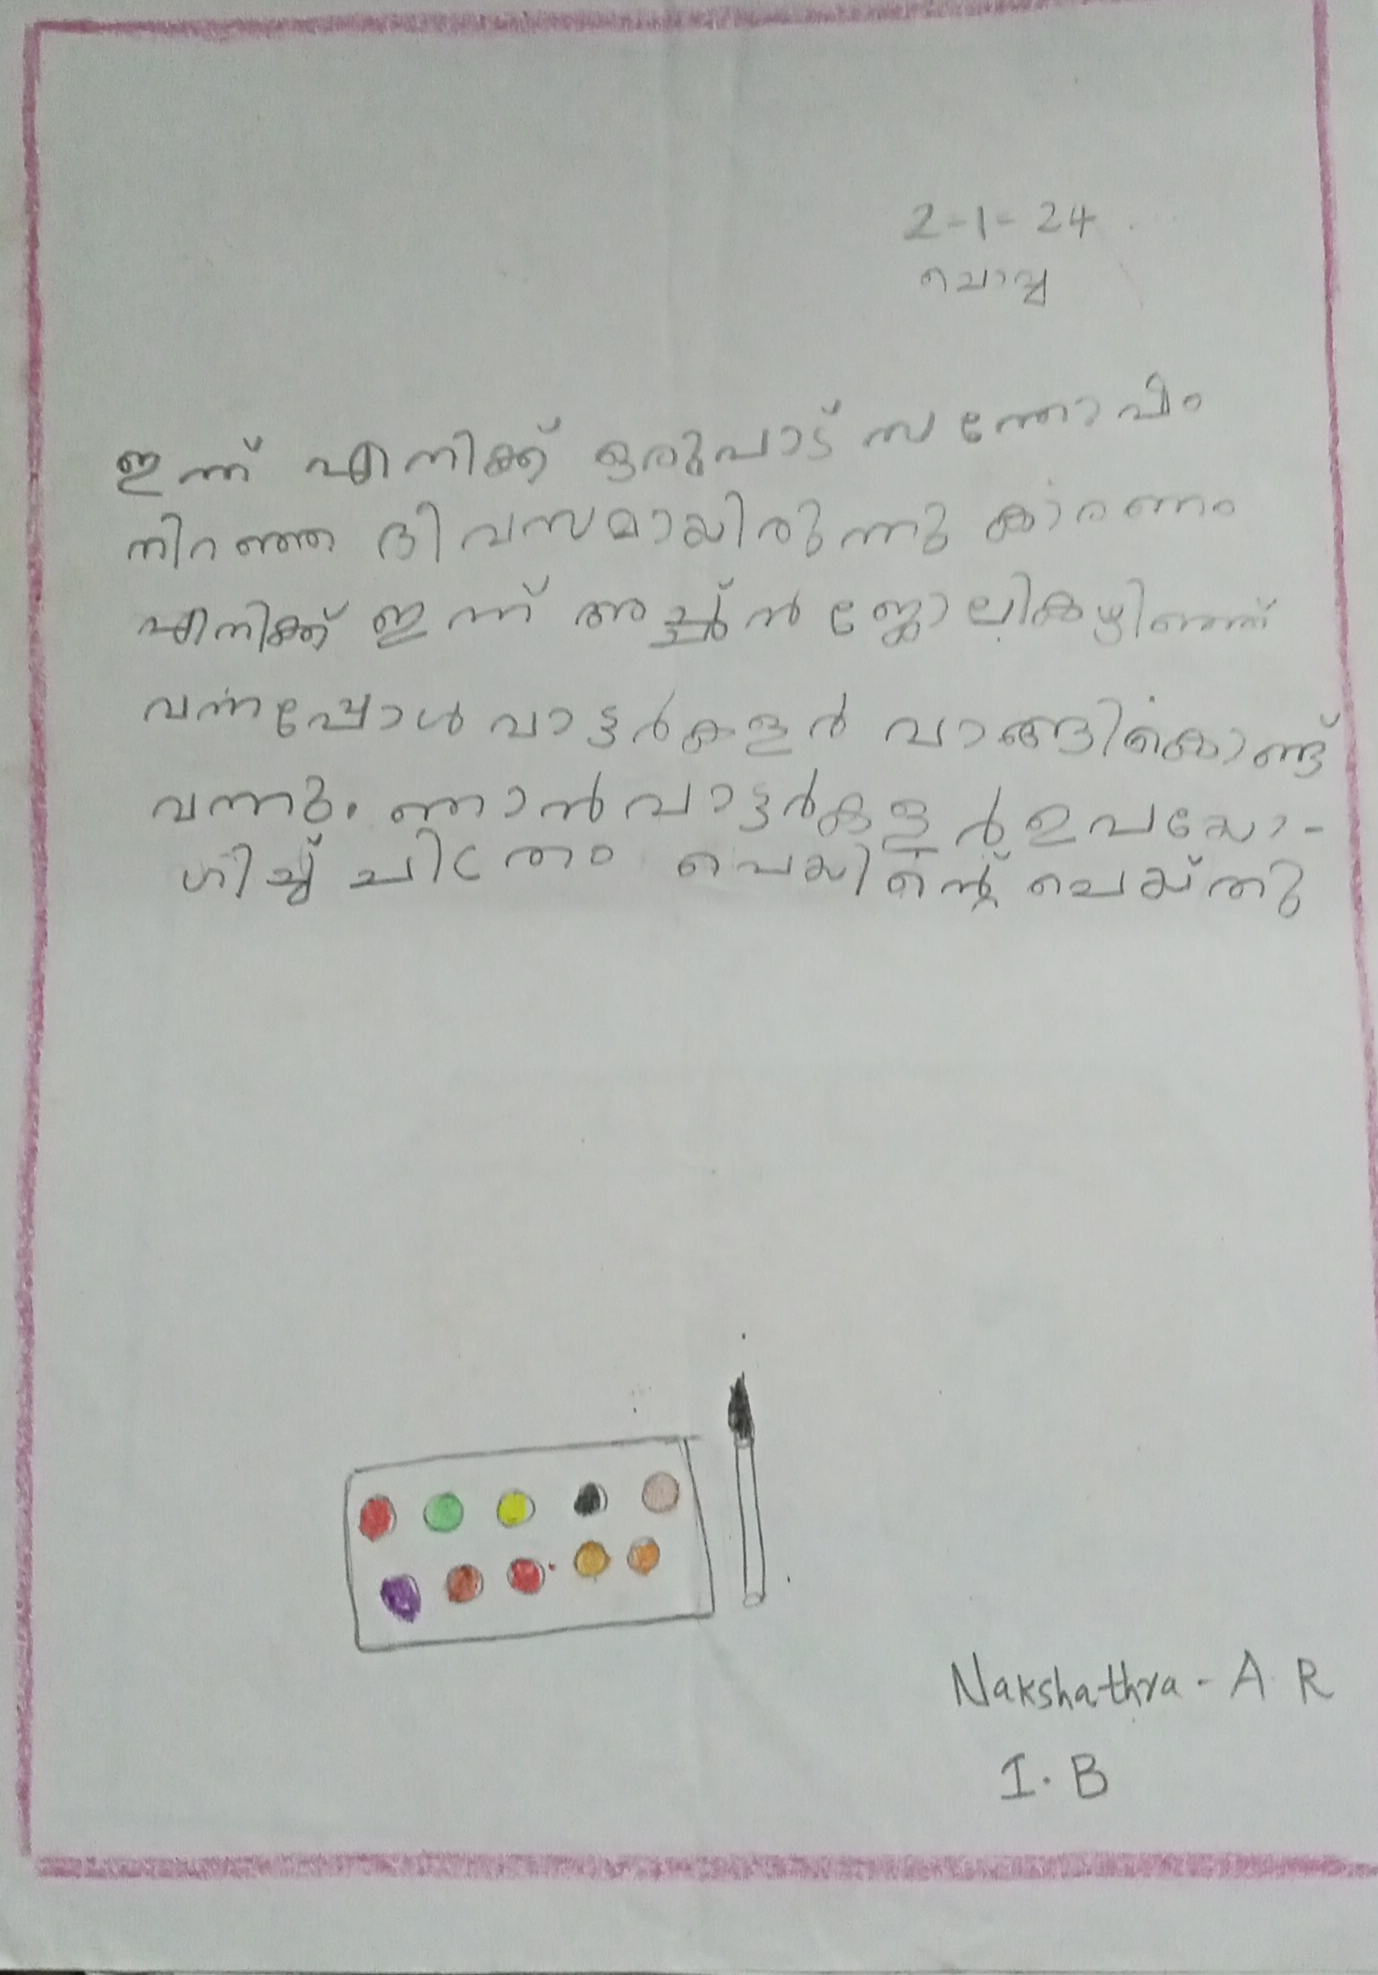 2-1-24
ചൊവ്വ
ഇന്ന് എനിക്ക് ഒരുപാട് സന്തോഷം
നിറഞ്ഞ ദിവസമായിരുന്നു കാരണം
എനിക്ക് ഇന്ന് അച്ഛൻ ജോലികഴിഞ്ഞ്
വന്നപ്പോൾ വാട്ടർകളർ വാങ്ങികൊണ്ട്
വന്നു. ഞാൻ വാട്ടർകളർ ഉപയോ-
ഗിച്ച് ചിത്രം പെയിന്റ് ചെയ്തു
Nakshathra - A R
I. B